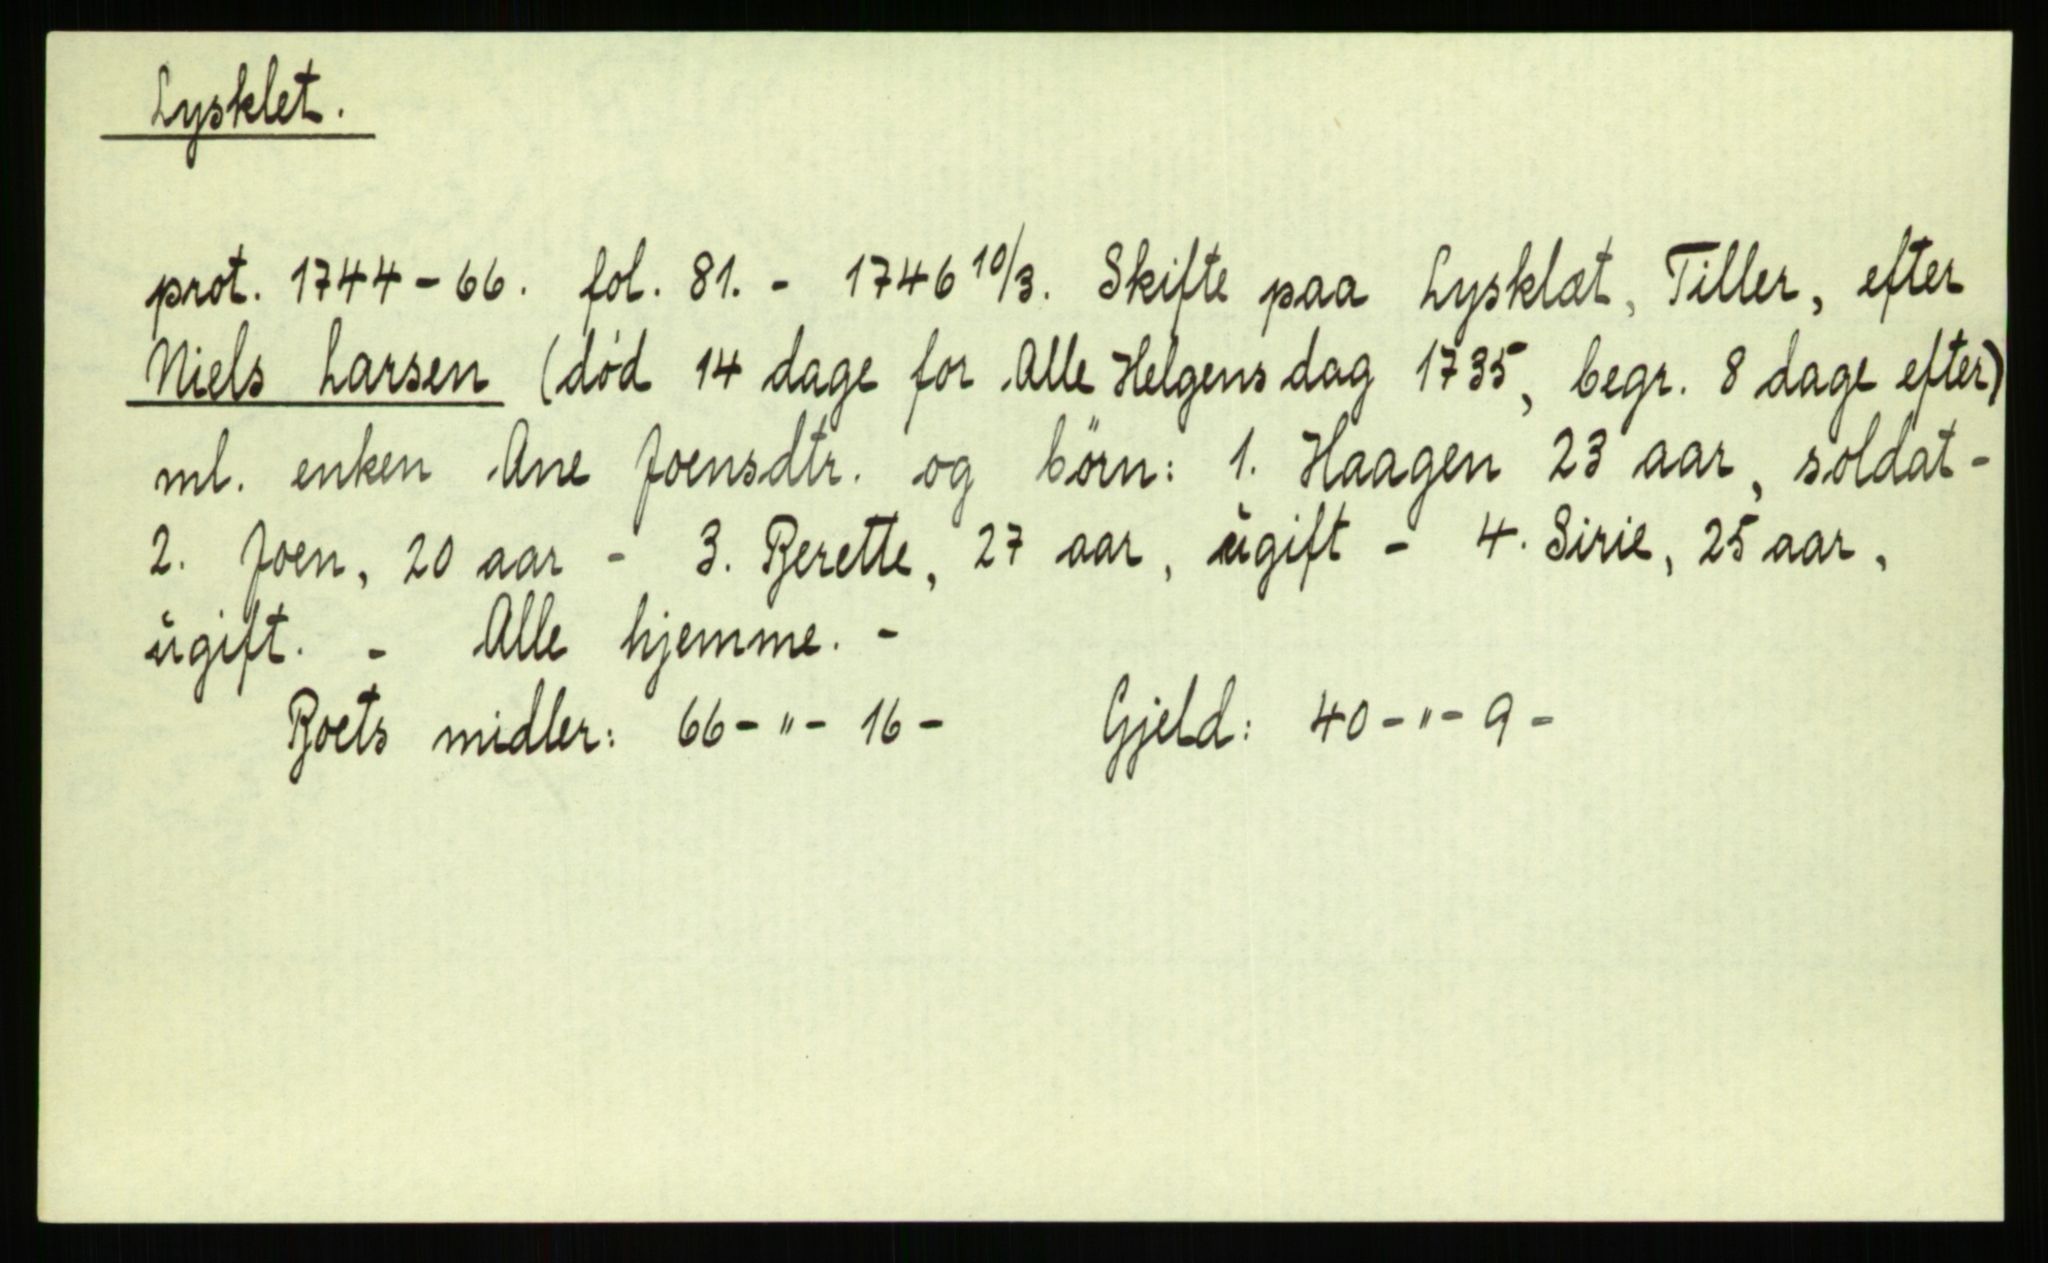 Lysklet.
prot. 1744-66. fol. 81. - 1746 10/3. Skifte paa Lysklæt, Tiller, efter
Niels Larsen (død 14 dage for Alle Helgens dag 1735, begr. 8 dage efter)
ml. enken Ane Joensdtr. og börn: 1. Haagen 23 aar, soldat -
2. Joen, 20 aar - 3. Berette, 27 aar, ugift - 4. Sirie, 25 aar,
ugift. - Alle hjemme. -
Boets midler: 66 - " - 16 - Gjeld: 40 - " - 9 -